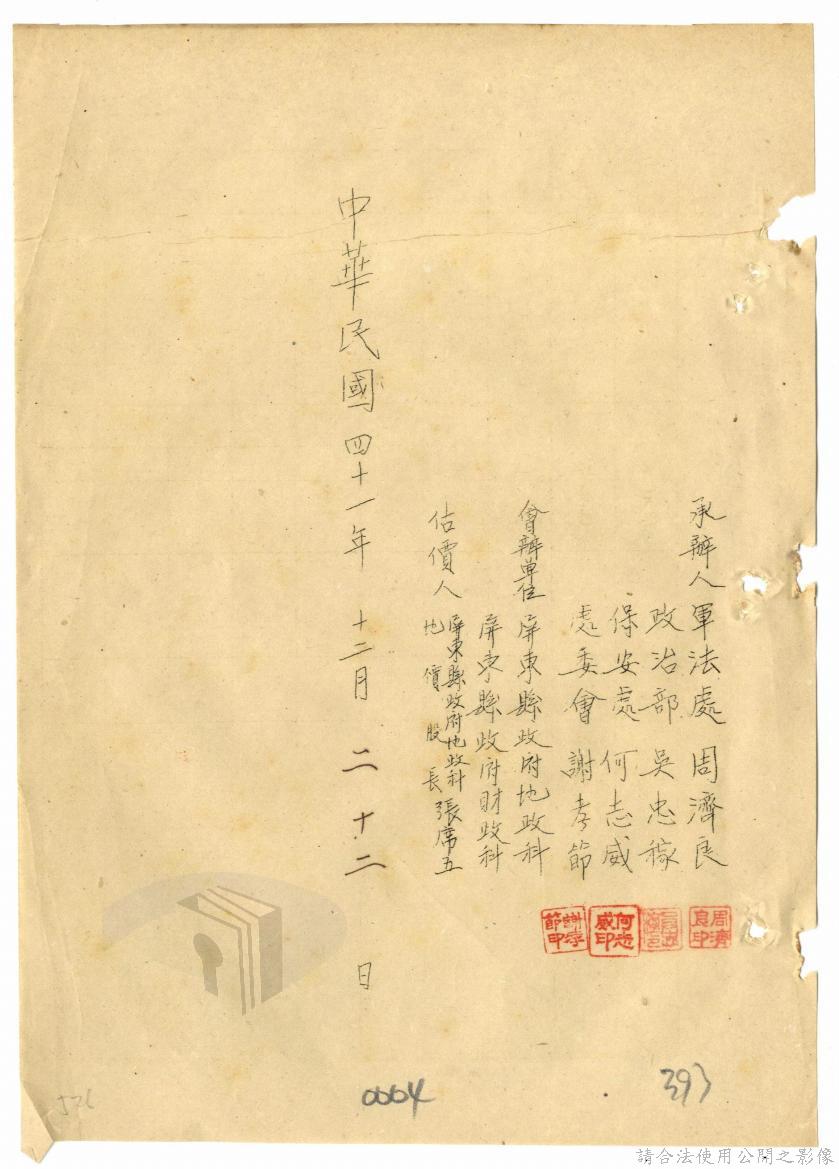 承辦人 軍法處 周濟良
政治部 吳忠稼
保安處 何志威
處委會 謝孝節
周濟良印
何志威印
謝孝節印
會辦單位 屏東縣政府地政科
屏東縣政府財政科
估價人 屏東縣政府地政科
地價股長 張席五
中華民國四十一年十二月二十二日
393
0004
請合法使用公開之影像